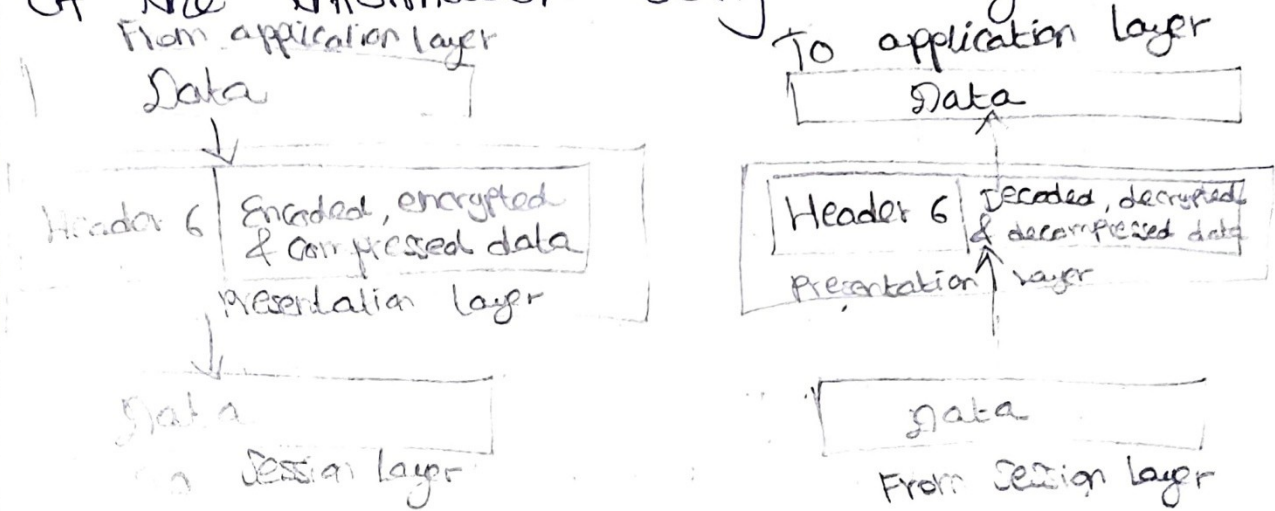 From application layer
Data
Header 6 Encoded, encrypted
& compressed data
Presentation layer
Data
Session layer
To application layer
Data
Header 6 Decoded, decrypted
& decompressed data
Presentation layer
Data
From Session layer